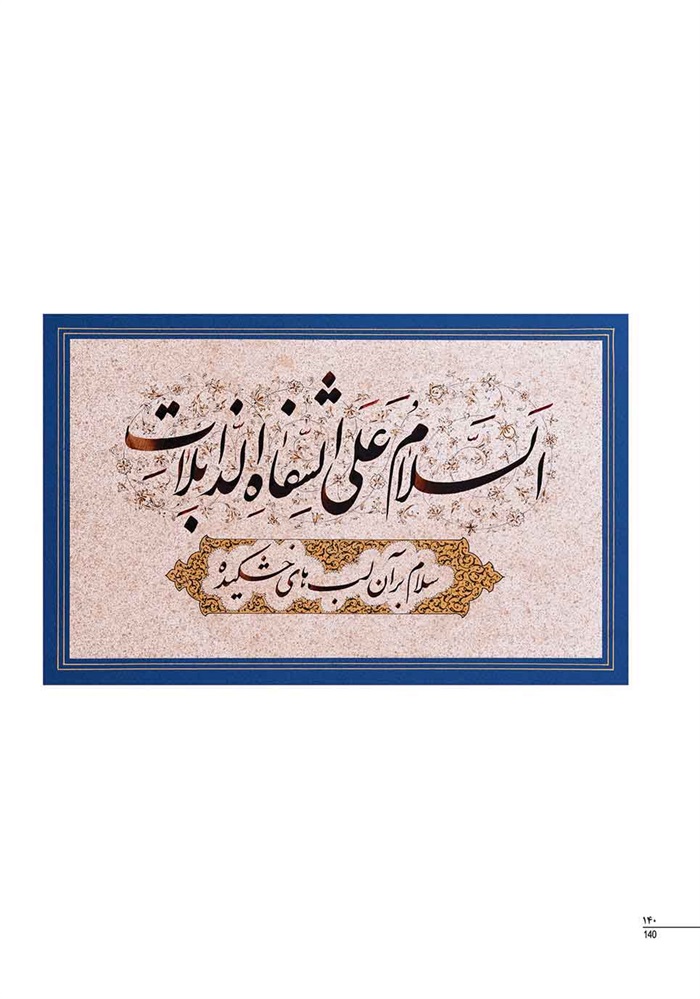 اَلسَّلامُ عَلَی الشِّفاهِ الذّابِلاتِ
سلام بر آن لب های خشکیده
۱۴۰
140